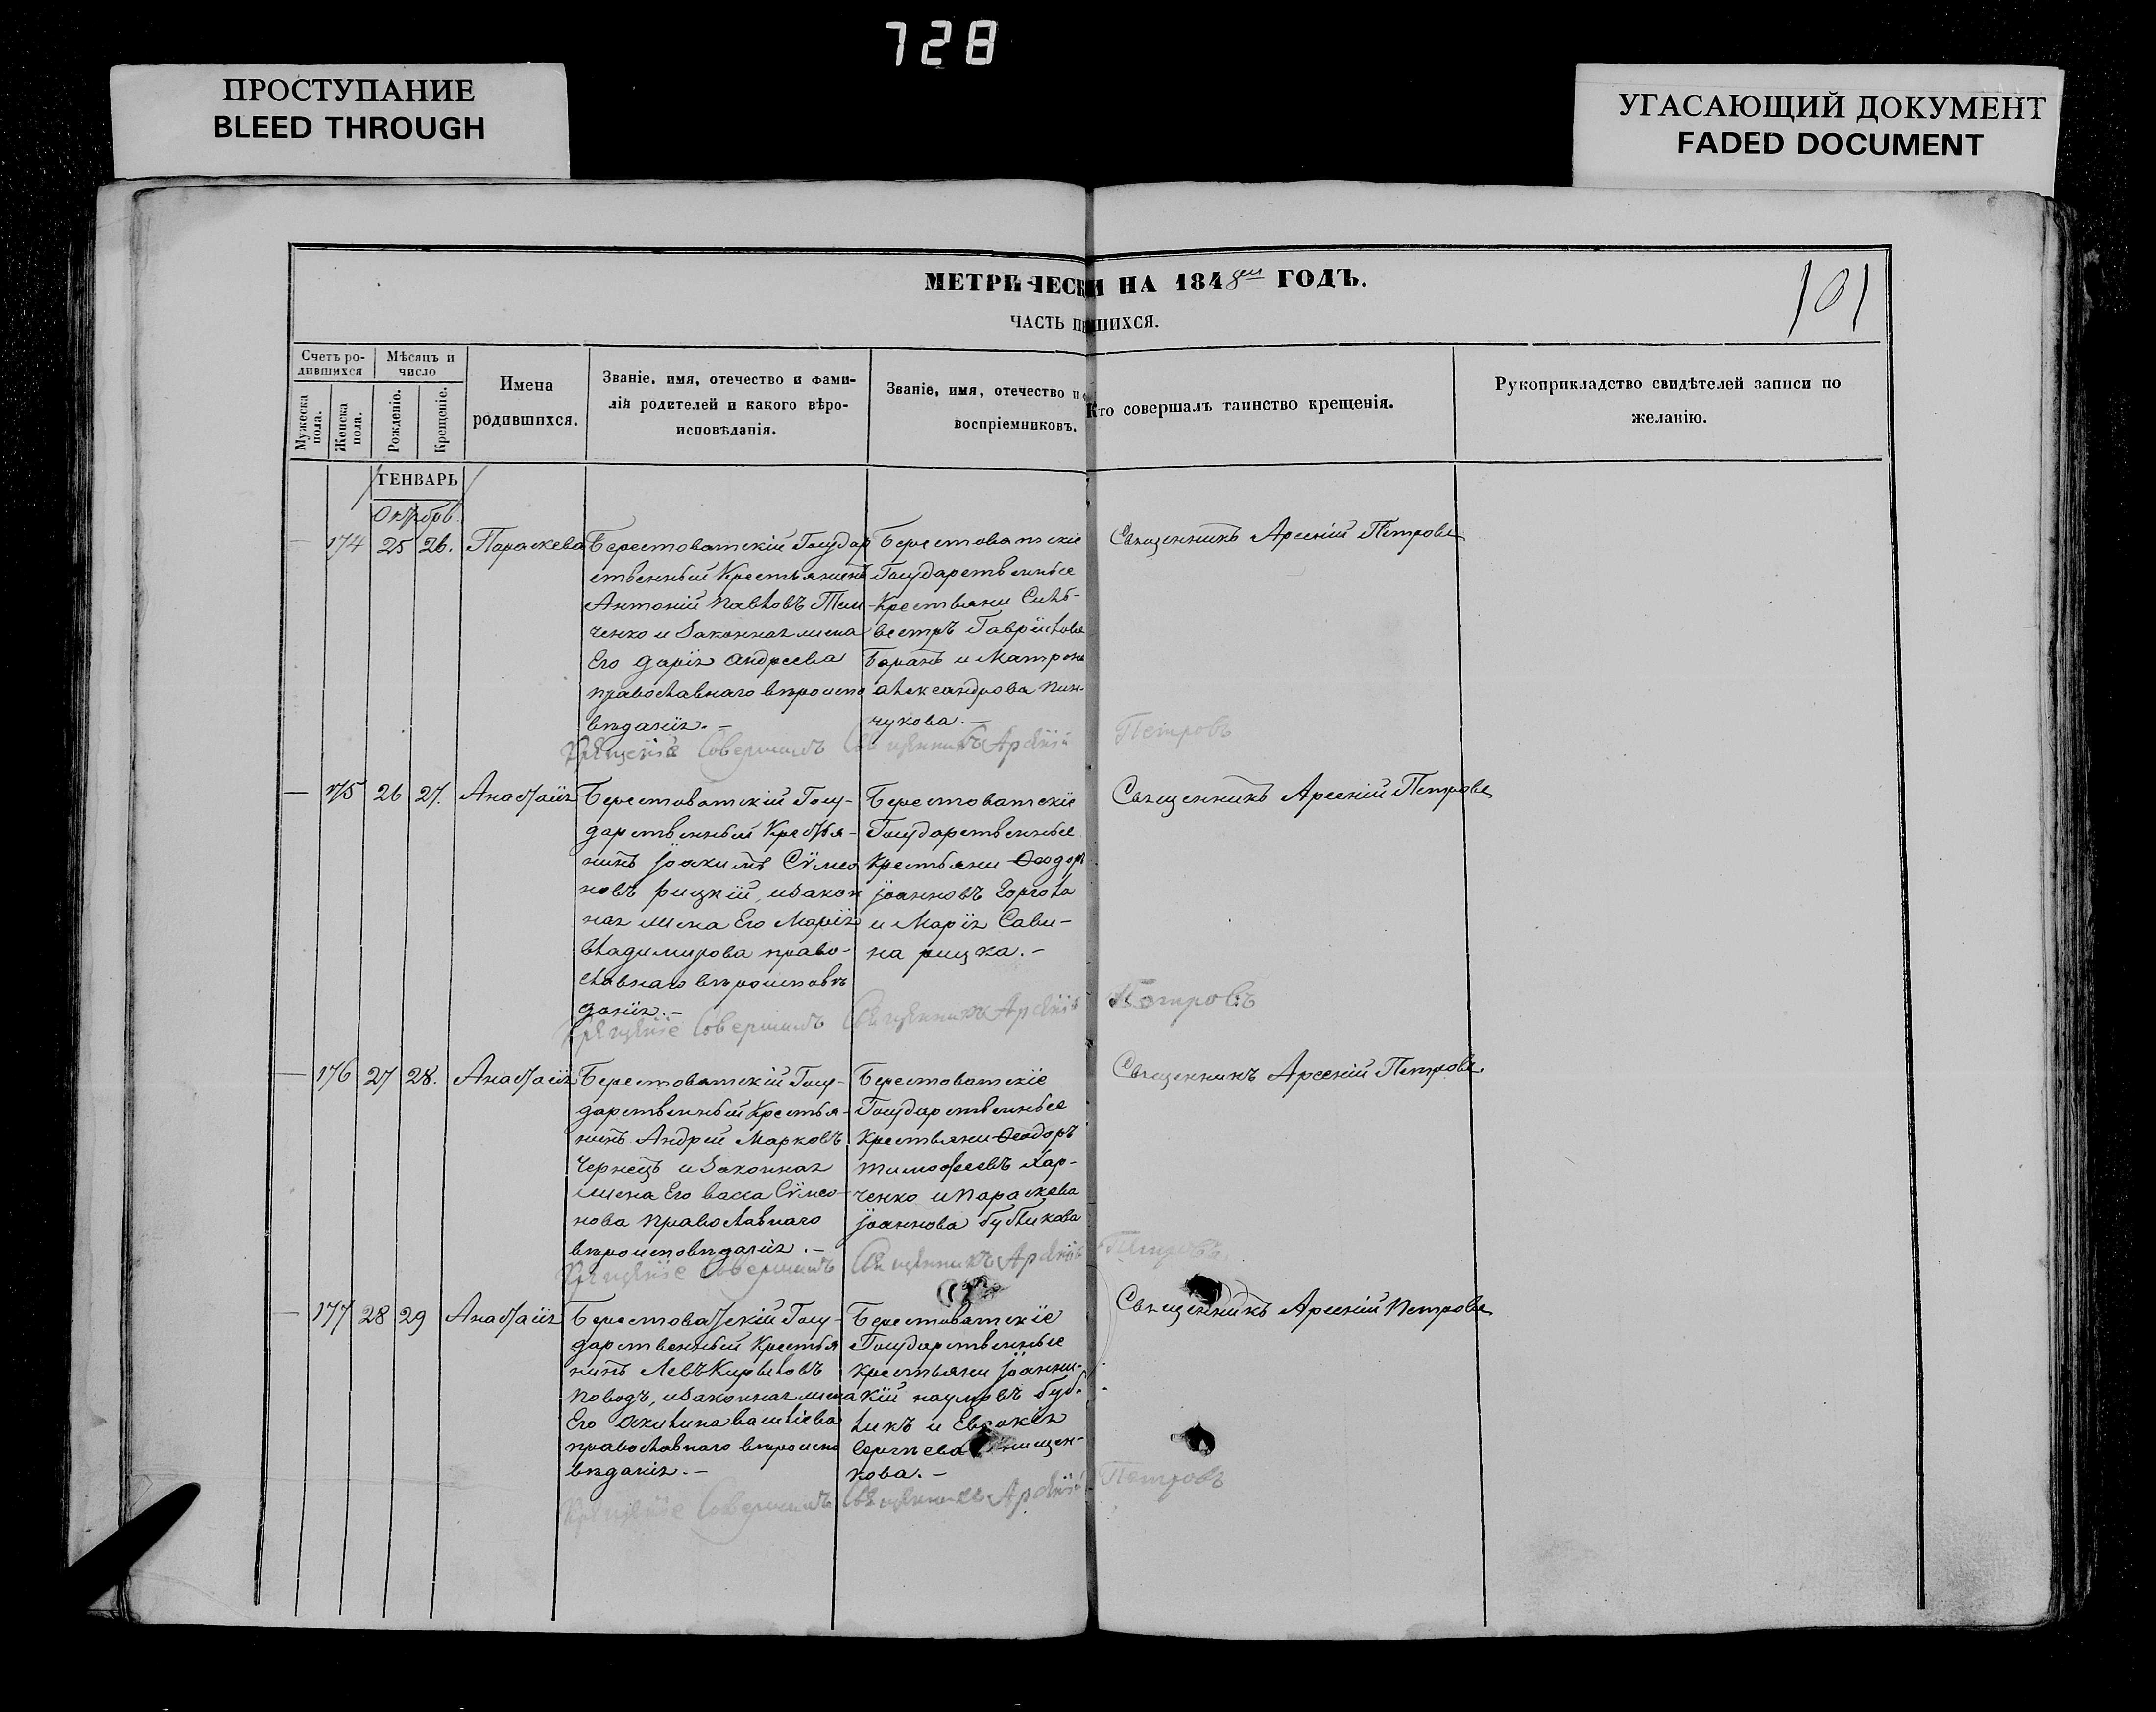 728
ПРОСТУПАНИЕ
BLEED THROUGH
УГАСАЮЩИЙ ДОКУМЕНТ
FADED DOCUMENT
МЕТРИЧЕСКИ НА 1848 ГОДЪ.
101
ЧАСТЬ ПЕ ШИХСЯ.
Счетъ ро-
дившихся
Мужеска пола.
Женска пола.
Мѣсяцъ и
число
Рожденіе.
Крещеніе.
Имена
родившихся.
Званіе, имя, отечество и фами-
лія родителей и какого вѣро-
исповѣданія.
Званіе, имя, отечество и
воспріемниковъ.
Кто совершалъ таинство крещенія.
Рукоприкладство свидѣтелей записи по
желанію.
ГЕНВАРЬ
Октябрь.
— 174 25 26. Параскева
Берестоватскій Государ
ственный Крестьянинъ
Антоній Павловъ
ченко и Законная жена
Его Дарія Андреева
православнаго вѣроиспо
вѣданія.—
Берестоватскіе
Государственные
Крестьяни Силь-
вестръ Гавріиловъ
Баранъ и Матрона
Александрова Пин-
чукова.—
Священникъ Арсеній Петровъ
Крещеніе Совершалъ Священникъ Арсеній Петровъ
— 175 26 27. Анастасія
Берестоватскій Госу-
дарственный Крестья-
нинъ Іоакимъ Сѵмео
новъ Рицкій, и Закон
ная жена Его Марія
Владимирова право-
славнаго вѣроисповѣ
данія.—
Берестоватскіе
Государственные
Крестьяни Ѳеодоръ
Іоанновъ
и Марія Сави-
на Рицка.—
Священникъ Арсеній Петровъ
Крещеніе Совершалъ Священникъ Арсеній Петровъ
— 176 27 28. Анастасія
Берестоватскій Госу-
дарственный Крестья-
нинъ Андрей Марковъ
Чернецъ и Законная
жена Его Васса Сѵмео-
нова православнаго
вѣроисповѣданія.—
Берестоватскіе
Государственные
Крестьяни Ѳеодоръ
Тимоѳеевъ Хар-
ченко и Параскева
Іоаннова Бубликова
Священникъ Арсеній Петровъ
Крещеніе Совершалъ Священникъ Арсеній Петровъ
— 177 28 29 Анастасія
Берестоватскій Госу-
дарственный Крестья
нинъ Левъ Кириловъ
Поводъ, и Законная жена
Его Акилина Василіева
православнаго вѣроиспо
вѣданія.—
Берестоватскіе
Государственные
Крестьяни Іоанни-
кій Наумовъ Буб-
ликъ и Евдокія
Сергѣева
кова.—
Священникъ Арсеній Петровъ
Крещеніе Совершалъ Священникъ Арсеній Петровъ